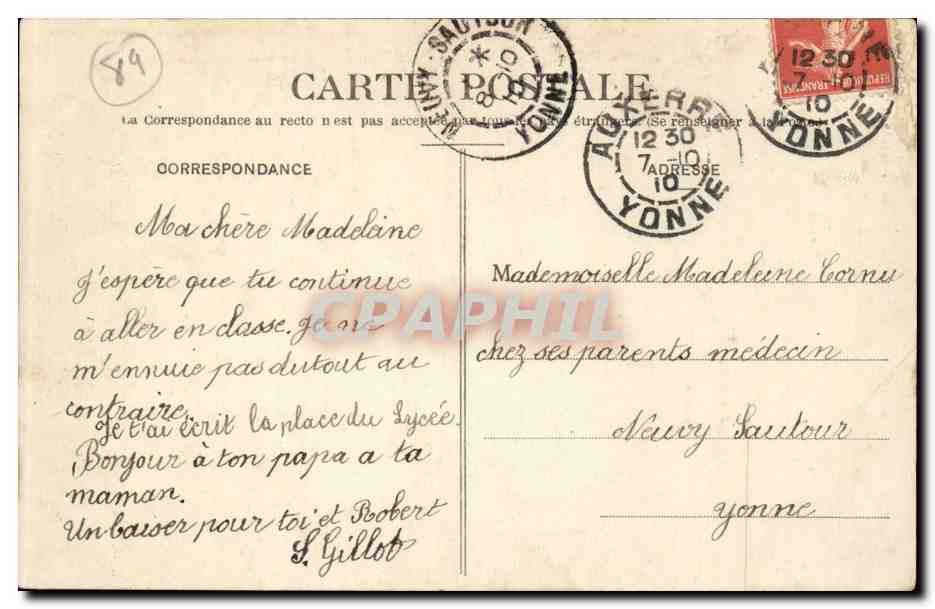 89
CARTE POSTALE
La Correspondance au recto n'est pas acceptée par tous les pays étrangers. (Se renseigner à la Poste)
CORRESPONDANCE
Ma chère Madeleine
j'espère que tu continue
à aller en classe. je ne
m'ennuie pas dutout au
contraire.
Je t'ai écrit la place du Lycée.
Bonjour à ton papa a ta
maman.
Un baiser pour toi et Robert
S. Gillot
NEUVY-SAUTOUR
*
8 -10
10
YONNE
AUXERRE
12 30
7 -10
10
YONNE
12 30
7 -10
10
YONNE
REPUBLIQUE FRANÇAISE
ADRESSE
Mademoiselle Madeleine Cornu
chez ses parents médecin
Neuvy Sautour
yonne
CPAPHIL